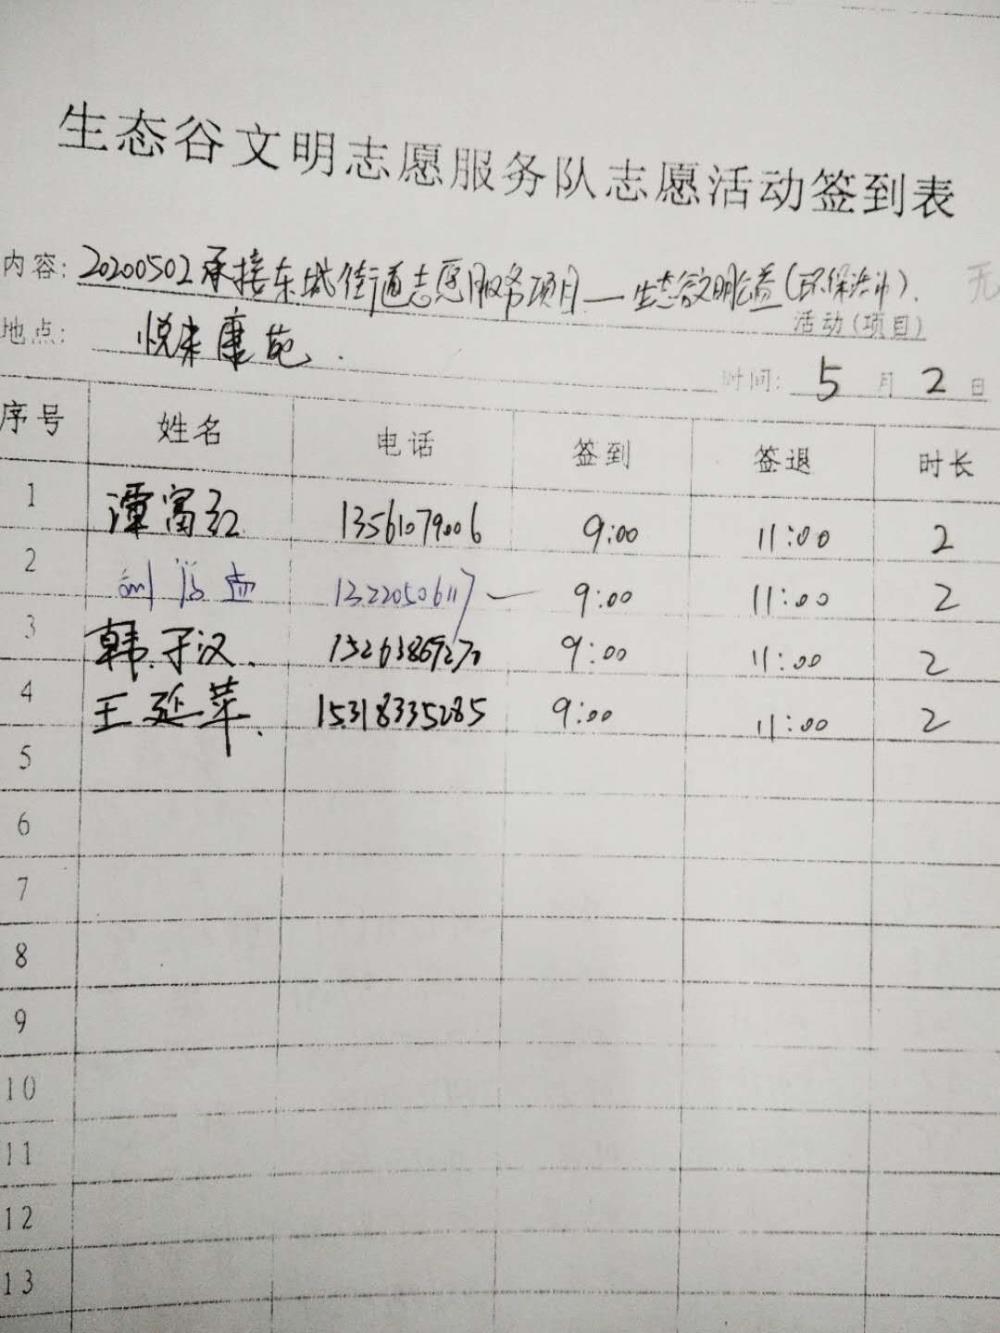 生态谷文明志愿服务队志愿活动签到表
内容: 20200502承接东城街道志愿服务项目—生态谷文明公益(环保法治). 无
活动(项目)
地点: 悦来康苑.
时间: 5 月 2 日
序号 姓名 电话 签到 签退 时长
1 潭富红 13561079006 9:00 11:00 2
2 刘 13220506117 — 9:00 11:00 2
3 韩于汉. 15263869270 9:00 11:00 2
4 王延苹. 15318335285 9:00 11:00 2
5
6
7
8
9
10
11
12
13